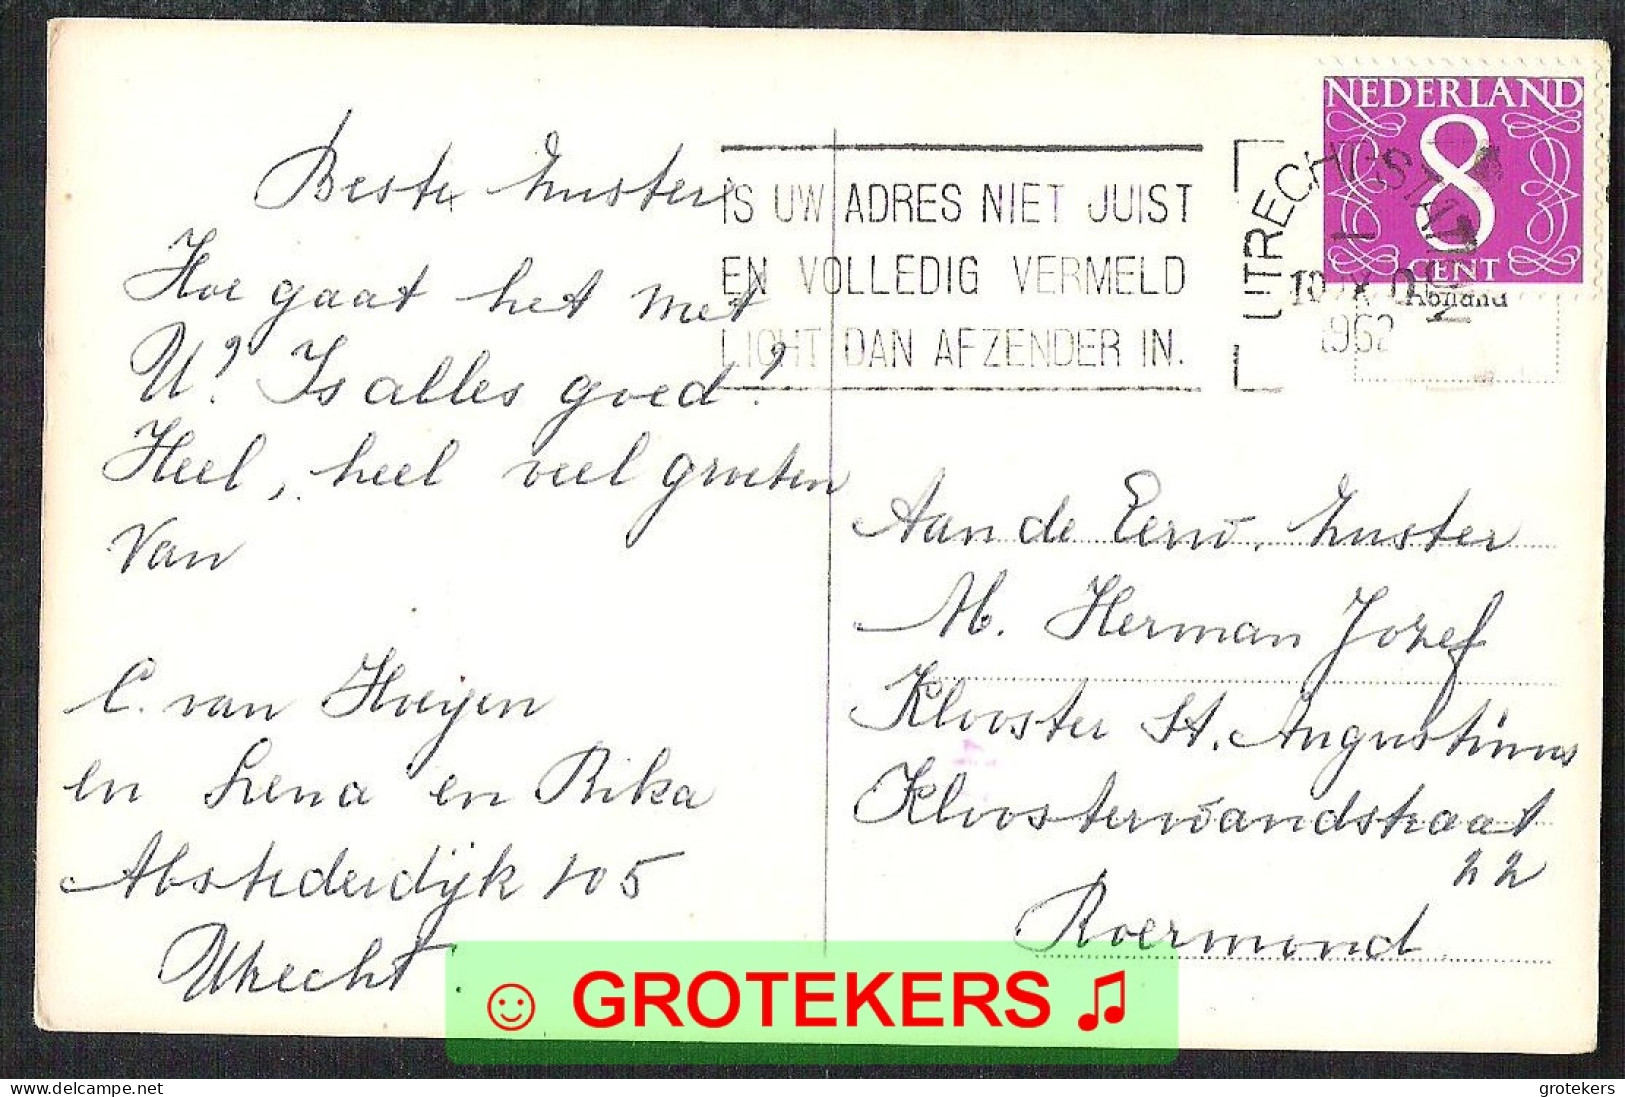 Beste Zuster
Hoe gaat het met
U? Is alles goed?
Heel, heel veel groeten
Van
C. van
en Lena en Rika
Abstederdijk 105
Utrecht.
IS UW ADRES NIET JUIST
EN VOLLEDIG VERMELD
LICHT DAN AFZENDER IN.
NEDERLAND
8
CENT
1962
Aan de Eerw. Zuster
M. Herman Jozef
Klooster St. Augustinus
Kloosterwandstraat
22
Roermond
☺ GROTEKERS ♫
delcampe.net
grotekers